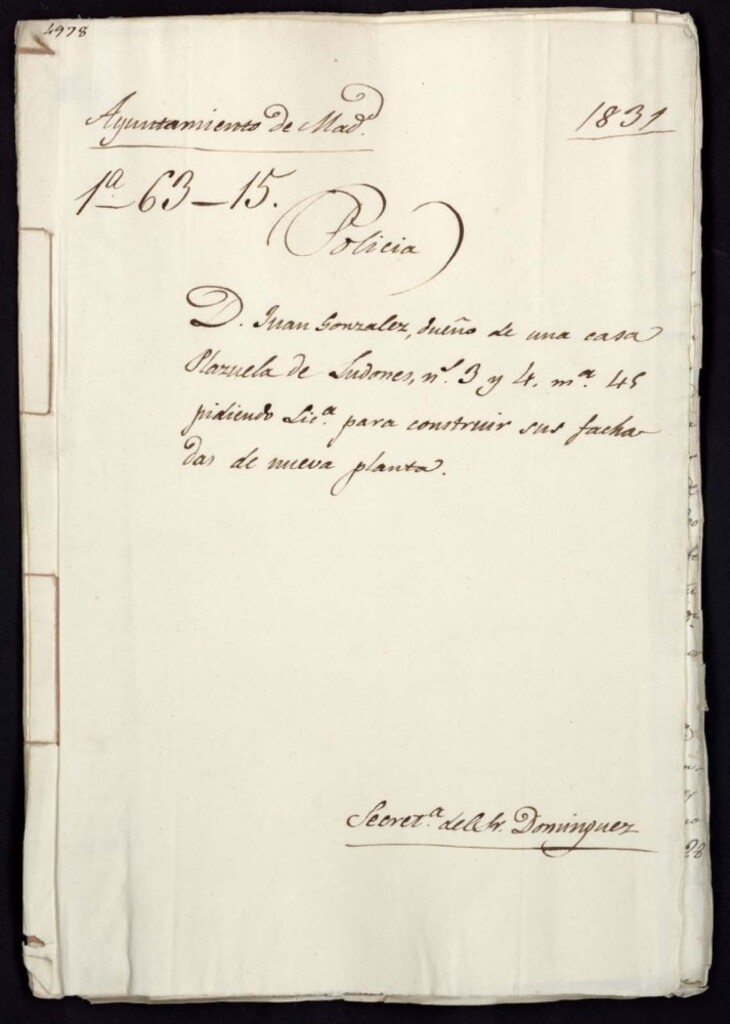 4978
Ayuntamiento de Mad.d
1831
1ª-63-15.
(Policia)
D. Juan Gonzalez, dueño de una casa
Plazuela de Ludones, n.l 3 y 4. m.a 45
pidiendo Lic.a para construir sus facha-
das de nueva planta.
Secret.a del Sr. Dominguez
28